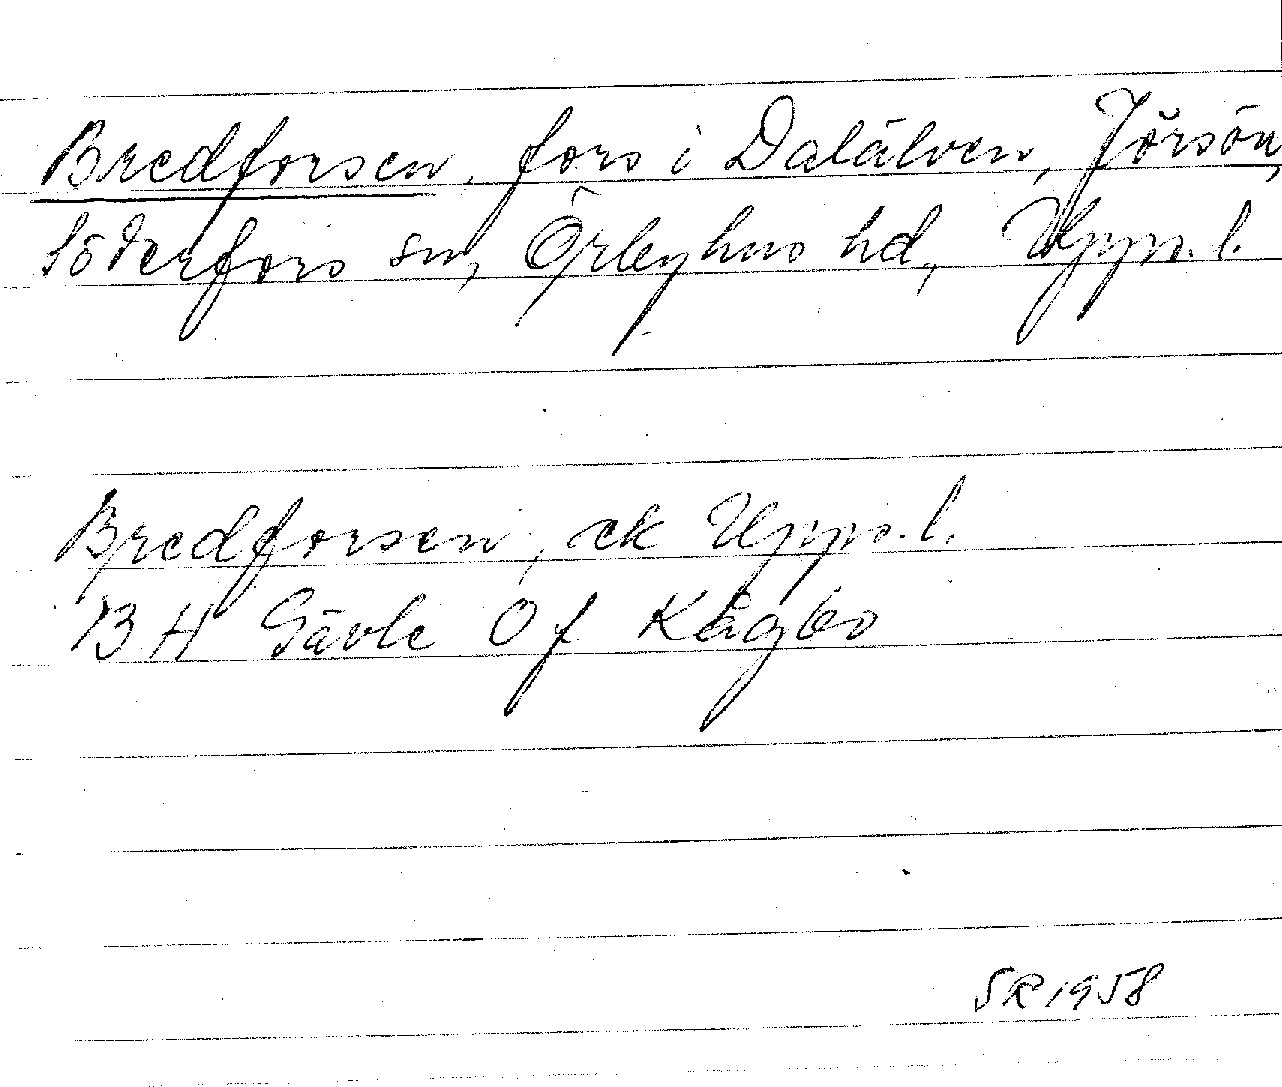 Bredforsen, fors i Dalälven, Jörsön,
Söderfors sn, Örbyhus hd, Upps. l.
Bredforsen, ek Upps. l.
BH Gävle Of Kågbo
SR 1958